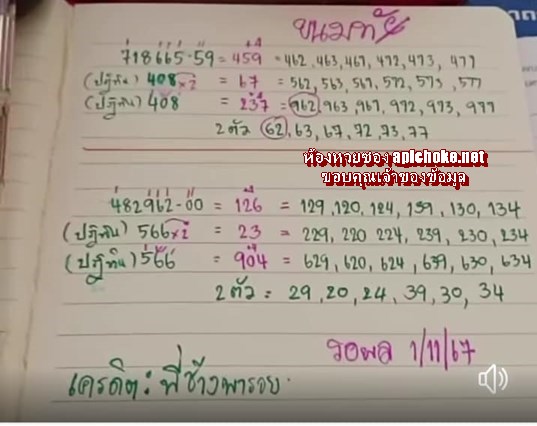 ขนมทัย
718665-59 = 459 = 462, 463, 467, 472, 473, 477
(ปฏิทิน) 408×2 = 67 = 562, 563, 567, 572, 573, 577
(ปฏิทิน) 408 = 237 = 962, 963, 967, 972, 973, 977
2 ตัว 62, 63, 67, 72, 73, 77
ห้องหวยซอง apichoke.net
ขอบคุณเจ้าของข้อมูล
482962-00 = 126 = 129, 120, 124, 139, 130, 134
(ปฏิทิน) 566×2 = 23 = 229, 220 224, 239, 230, 234
(ปฏิทิน) 566 = 904 = 629, 620, 624, 639, 630, 634
2 ตัว = 29, 20, 24, 39, 30, 34
รอผล 1/11/67
เครดิต: พี่ช้างพารวย